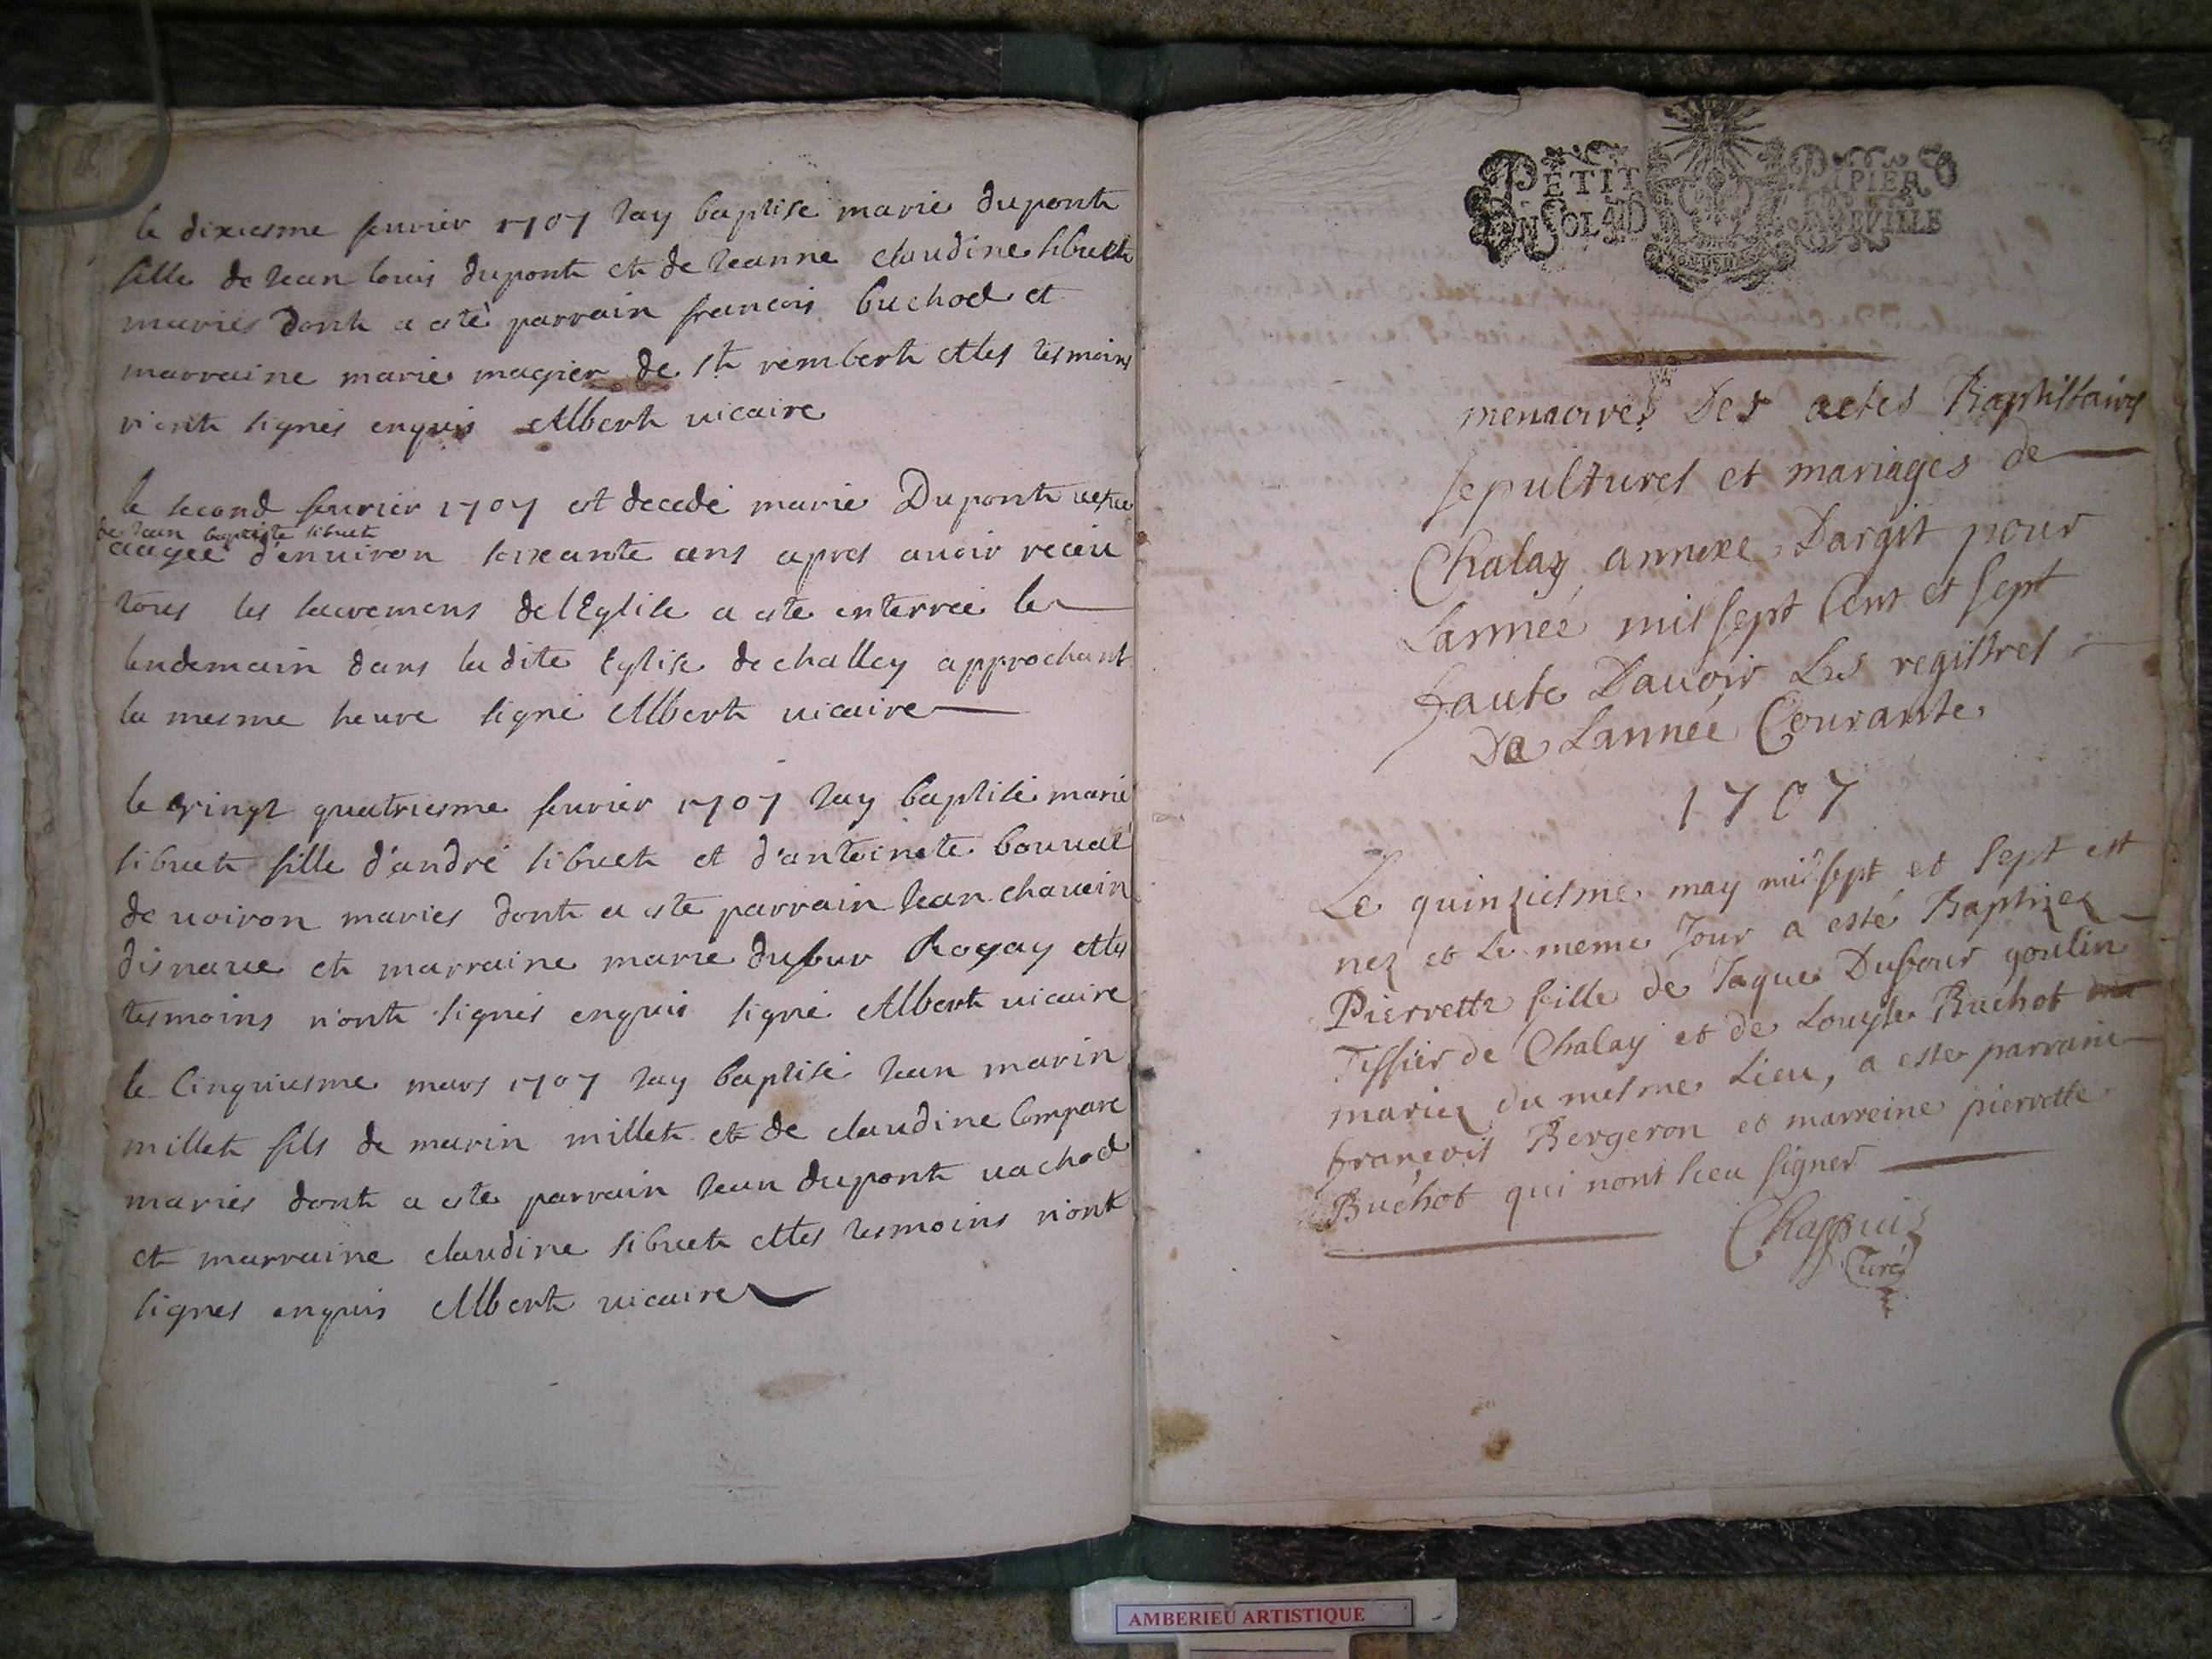 le dixiesme feurier 1707 Jay baptise marie dupont
fille de Jean louis dupont et de Jeanne claudine sibuet
maries dont a esté parrain francois buchod et
marraine marie magnier de st rembert et les tesmoins
n'ont signés enquis Albert uicaire
le second feurier 1707 est decedé marie Dupont uefue
de Jean baptiste sibuet
aagée d'enuiron soixante ans apres auoir receu
tous les sacremens de l'Eglise a esté enterrée le
lendemain dans la dite Eglise de challey approchant
la mesme heure signé Albert uicaire
le vingt quatriesme feurier 1707 Jay baptisé marie
sibuet fille d'andré sibuet et d'antoinete bouuat
de uoiron maries dont a esté parrain Jean chauuin
et marraine marie dufur Rogay et les
tesmoins n'ont signés enquis signé Albert uicaire
le Cinquiesme mars 1707 Jay baptisé Jean marin
millet fils de marin millet et de claudine Compare
mariés dont a esté parrain Jean dupont uachod
et marraine claudine sibuet et les tesmoins n'ont
signes enquis Albert uicaire
PETIT PAPIER
UN SOL 4D LA FEVILLE
memoires Des actes Baptistaires
sepultures et mariages de
Chalay annexe Dargit pour
Lannée mil sept Cent et sept
faute Dauoir Les registres
De Lannée Courante
1707
Le quinziesme may mil sept et sept est
nez et le meme Jour a esté Baptizez
Pierrette fille de Jaque Dufour goulin
Tissier de Chalay et de Louyse Buchot
mariez du mesme Lieu, a este parrain
françois Bergeron et marreine pierrette
Buchot qui nont sceu signer
Chappuis
Curé
AMBERIEU ARTISTIQUE